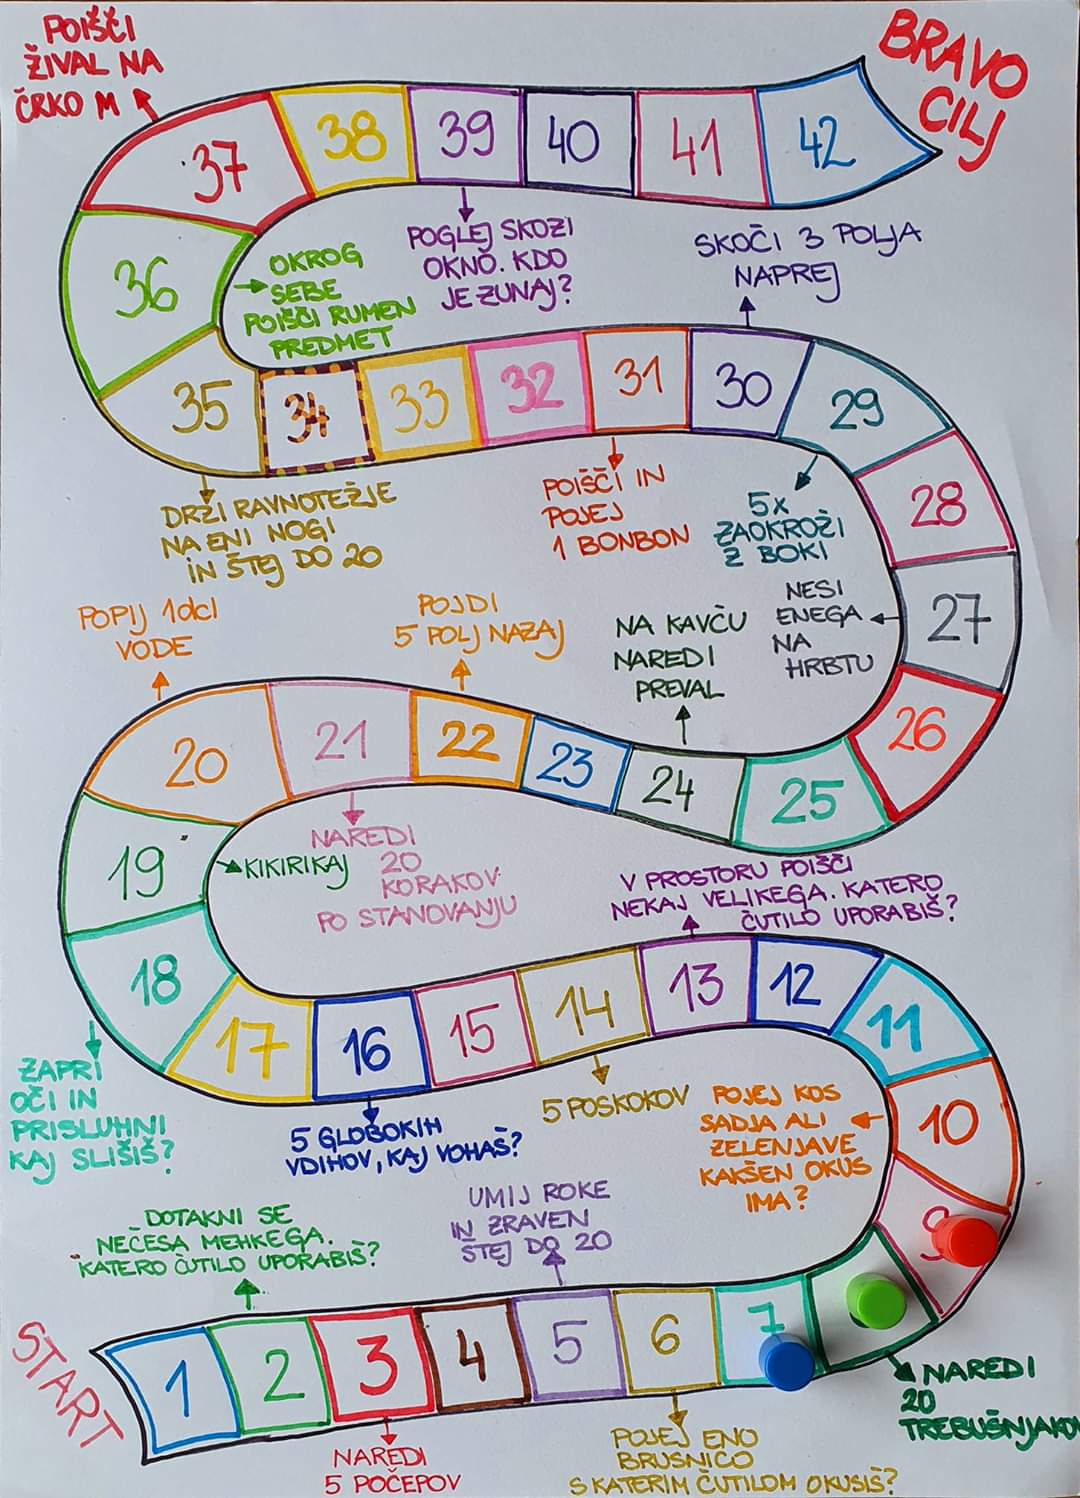 POIŠČI
ŽIVAL NA
ČRKO M
BRAVO
CILJ
37
38
39
40
41
42
POGLEJ SKOZI
OKNO. KDO
JE ZUNAJ?
SKOČI 3 POLJA
NAPREJ
36
OKROG
SEBE
POIŠČI RUMEN
PREDMET
35
34
33
32
31
30
29
28
27
26
DRŽI RAVNOTEŽJE
NA ENI NOGI
IN ŠTEJ DO 20
POIŠČI IN
POJEJ
1 BONBON
5x
ZAOKROŽI
Z BOKI
NESI
ENEGA
NA
HRBTU
POPIJ 1dcl
VODE
POJDI
5 POLJ NAZAJ
NA KAVČU
NAREDI
PREVAL
20
21
22
23
24
25
19
KIKIRIKAJ
NAREDI
20
KORAKOV
PO STANOVANJU
V PROSTORU POIŠČI
NEKAJ VELIKEGA. KATERO
ČUTILO UPORABIŠ?
18
17
16
15
14
13
12
11
10
9
ZAPRI
OČI IN
PRISLUHNI
KAJ SLIŠIŠ?
5 GLOBOKIH
VDIHOV, KAJ VOHAŠ?
5 POSKOKOV
POJEJ KOS
SADJA ALI
ZELENJAVE
KAKŠEN OKUS
IMA?
DOTAKNI SE
NEČESA MEHKEGA.
KATERO ČUTILO UPORABIŠ?
UMIJ ROKE
IN ZRAVEN
ŠTEJ DO 20
START
1
2
3
4
5
6
7
NAREDI
20
TREBUŠNJAKOV
NAREDI
5 POČEPOV
POJEJ ENO
BRUSNICO
S KATERIM ČUTILOM OKUSIŠ?